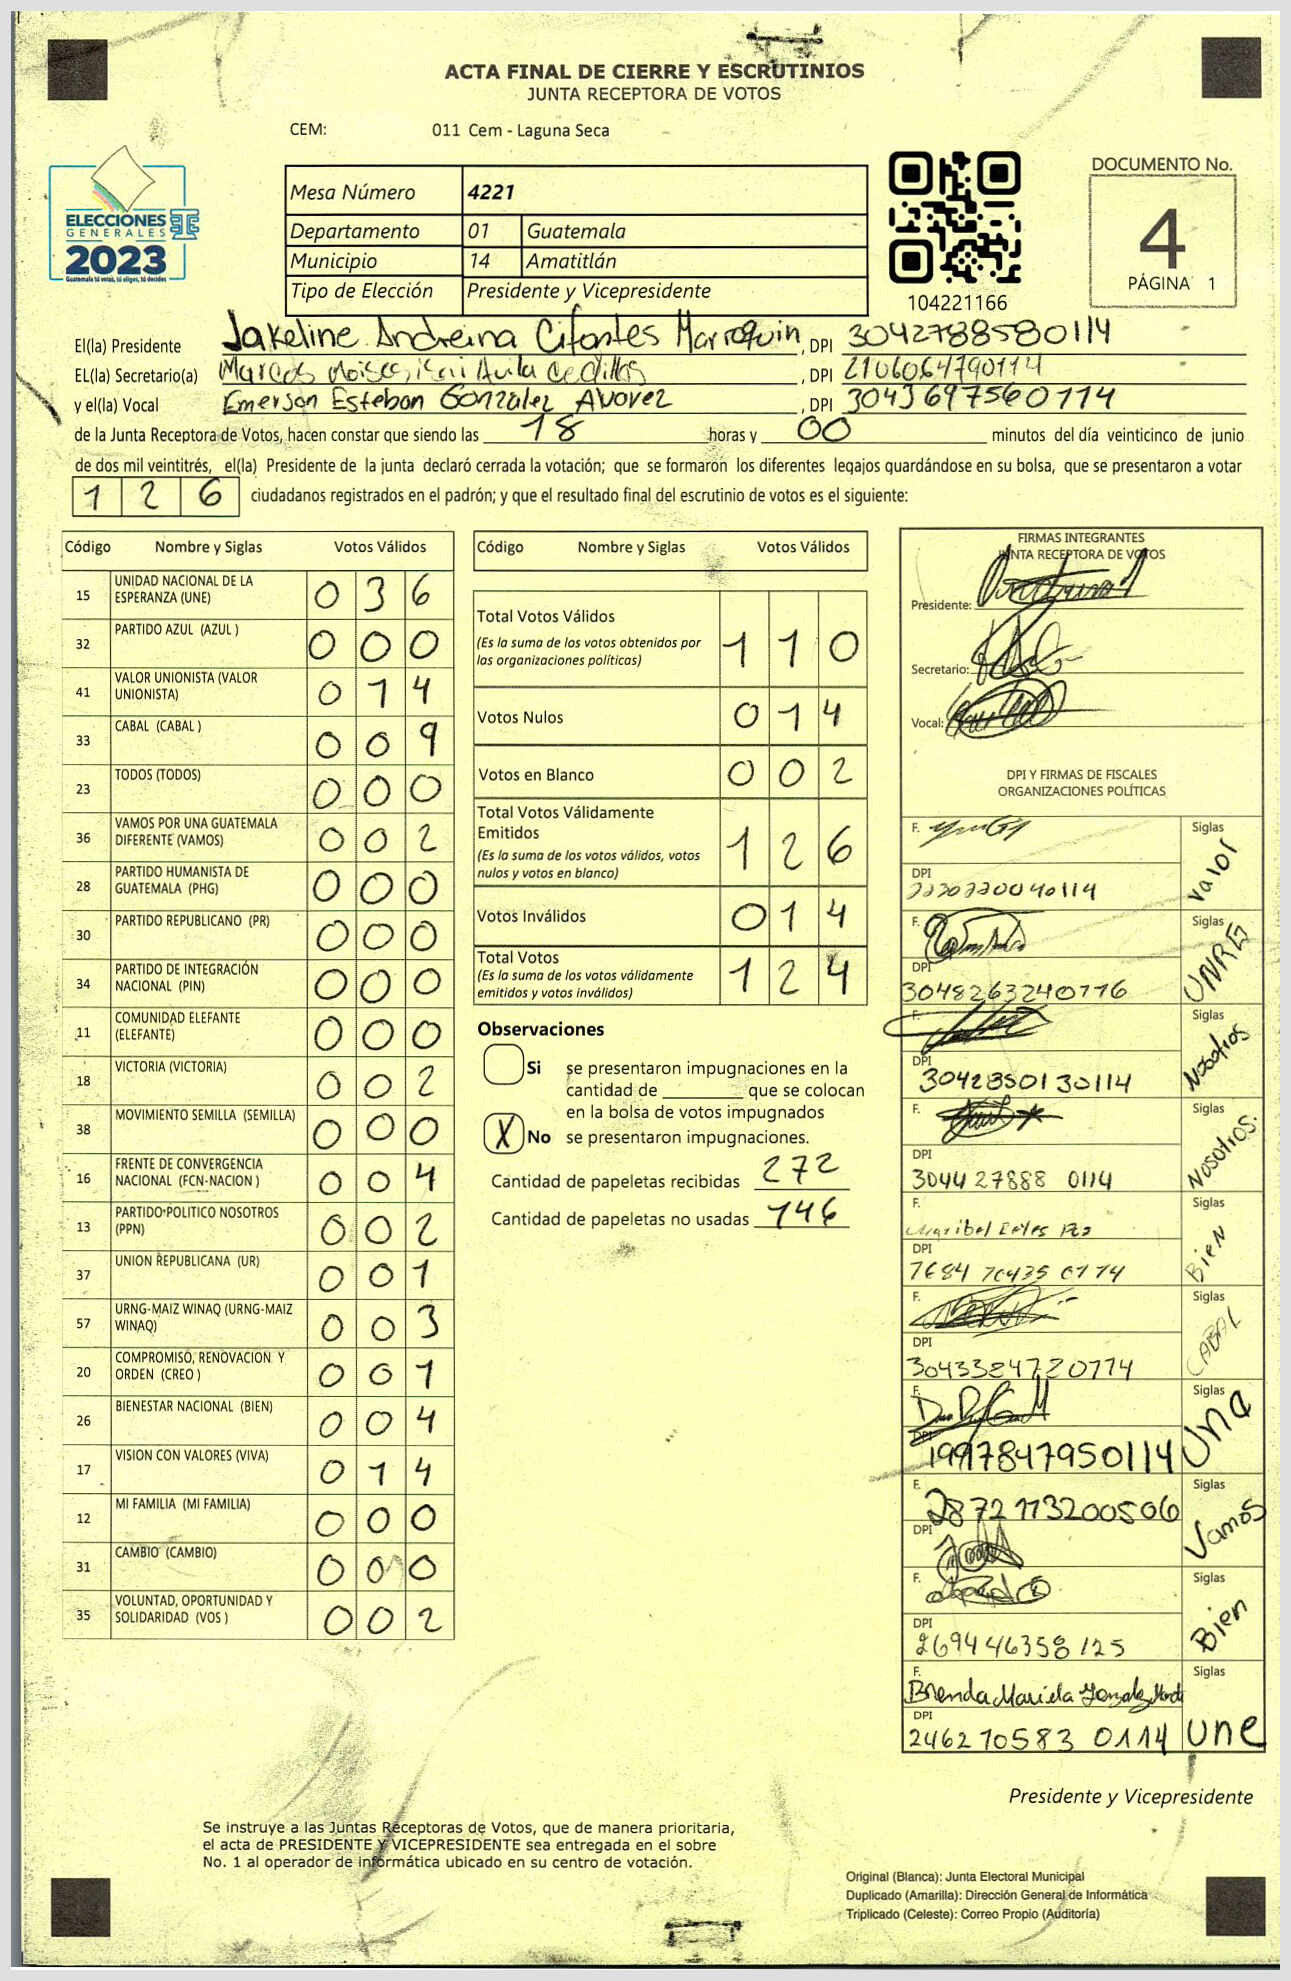 ACTA FINAL DE CIERRE Y ESCRUTINIOS
JUNTA RECEPTORA DE VOTOS
CEM: 011 Cem - Laguna Seca
ELECCIONES
GENERALES
2023
Guatemala tú votas, tú eliges, tú decides
Mesa Número 4221
Departamento 01 Guatemala
Municipio 14 Amatitlán
Tipo de Elección Presidente y Vicepresidente
104221166
DOCUMENTO No.
4
PÁGINA 1
El(la) Presidente Jakeline Andreina Cifontes Marroquin, DPI 3042788580114
EL(la) Secretario(a) Marcos Avila Cedillos, DPI 2106064790114
y el(la) Vocal Emerson Esteban Gonzalez Alvarez, DPI 3043697560114
de la Junta Receptora de Votos, hacen constar que siendo las 18 horas y 00 minutos del día veinticinco de junio
de dos mil veintitrés, el(la) Presidente de la junta declaró cerrada la votación; que se formaron los diferentes legajos guardándose en su bolsa, que se presentaron a votar
126 ciudadanos registrados en el padrón; y que el resultado final del escrutinio de votos es el siguiente:
Código Nombre y Siglas Votos Válidos
15 UNIDAD NACIONAL DE LA ESPERANZA (UNE) 036
32 PARTIDO AZUL (AZUL ) 000
41 VALOR UNIONISTA (VALOR UNIONISTA) 014
33 CABAL (CABAL ) 009
23 TODOS (TODOS) 000
36 VAMOS POR UNA GUATEMALA DIFERENTE (VAMOS) 002
28 PARTIDO HUMANISTA DE GUATEMALA (PHG) 000
30 PARTIDO REPUBLICANO (PR) 000
34 PARTIDO DE INTEGRACIÓN NACIONAL (PIN) 000
11 COMUNIDAD ELEFANTE (ELEFANTE) 000
18 VICTORIA (VICTORIA) 002
38 MOVIMIENTO SEMILLA (SEMILLA) 000
16 FRENTE DE CONVERGENCIA NACIONAL (FCN-NACION ) 004
13 PARTIDO POLITICO NOSOTROS (PPN) 002
37 UNION REPUBLICANA (UR) 001
57 URNG-MAIZ WINAQ (URNG-MAIZ WINAQ) 003
20 COMPROMISO, RENOVACION Y ORDEN (CREO ) 001
26 BIENESTAR NACIONAL (BIEN) 004
17 VISION CON VALORES (VIVA) 014
12 MI FAMILIA (MI FAMILIA) 000
31 CAMBIO (CAMBIO) 000
35 VOLUNTAD, OPORTUNIDAD Y SOLIDARIDAD (VOS ) 002
Código Nombre y Siglas Votos Válidos
Total Votos Válidos 110
(Es la suma de los votos obtenidos por las organizaciones políticas)
Votos Nulos 014
Votos en Blanco 002
Total Votos Válidamente Emitidos 126
(Es la suma de los votos válidos, votos nulos y votos en blanco)
Votos Inválidos 014
Total Votos 124
(Es la suma de los votos válidamente emitidos y votos inválidos)
Observaciones
Si se presentaron impugnaciones en la
cantidad de ________ que se colocan
en la bolsa de votos impugnados
X No se presentaron impugnaciones.
Cantidad de papeletas recibidas 272
Cantidad de papeletas no usadas 146
FIRMAS INTEGRANTES
JUNTA RECEPTORA DE VOTOS
Presidente:
Secretario:
Vocal:
DPI Y FIRMAS DE FISCALES
ORGANIZACIONES POLÍTICAS
F. Siglas Valor
DPI
F. Siglas UNRG
DPI 3048263240116
F. Siglas Nosotros
DPI 3042850130114
F. Siglas Nosotros.
DPI 3044 27888 0114
F. Maribel Siglas Bien
DPI 1684 70435 0114
F. Siglas CABAL
DPI 3043324720114
F. Siglas Una
DPI 1997847950114
F. 2872113200506 Siglas Vamos
DPI
F. Siglas Bien
DPI 269446358 125
F. Brenda Mariela Siglas une
DPI 246270583 0114
Presidente y Vicepresidente
Se instruye a las Juntas Receptoras de Votos, que de manera prioritaria,
el acta de PRESIDENTE Y VICEPRESIDENTE sea entregada en el sobre
No. 1 al operador de informática ubicado en su centro de votación.
Original (Blanca): Junta Electoral Municipal
Duplicado (Amarilla): Dirección General de Informática
Triplicado (Celeste): Correo Propio (Auditoría)